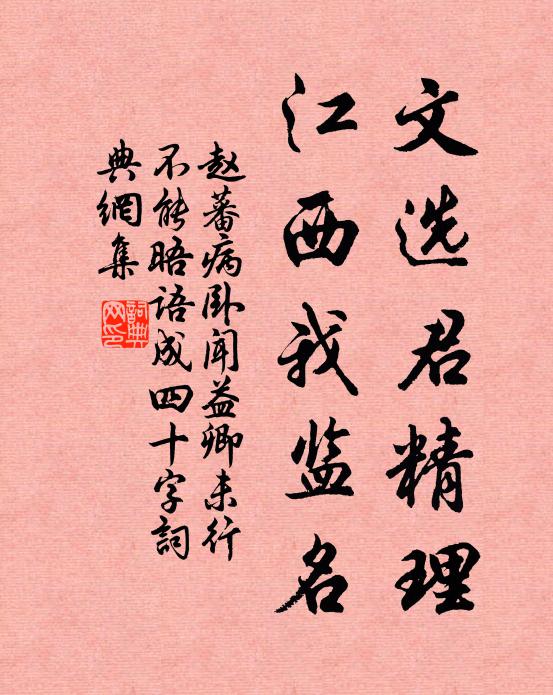 文选君精理
江西我监名
赵蕃病卧闻益卿未行
不能晤语成四十字詞
典網集
詞典網印